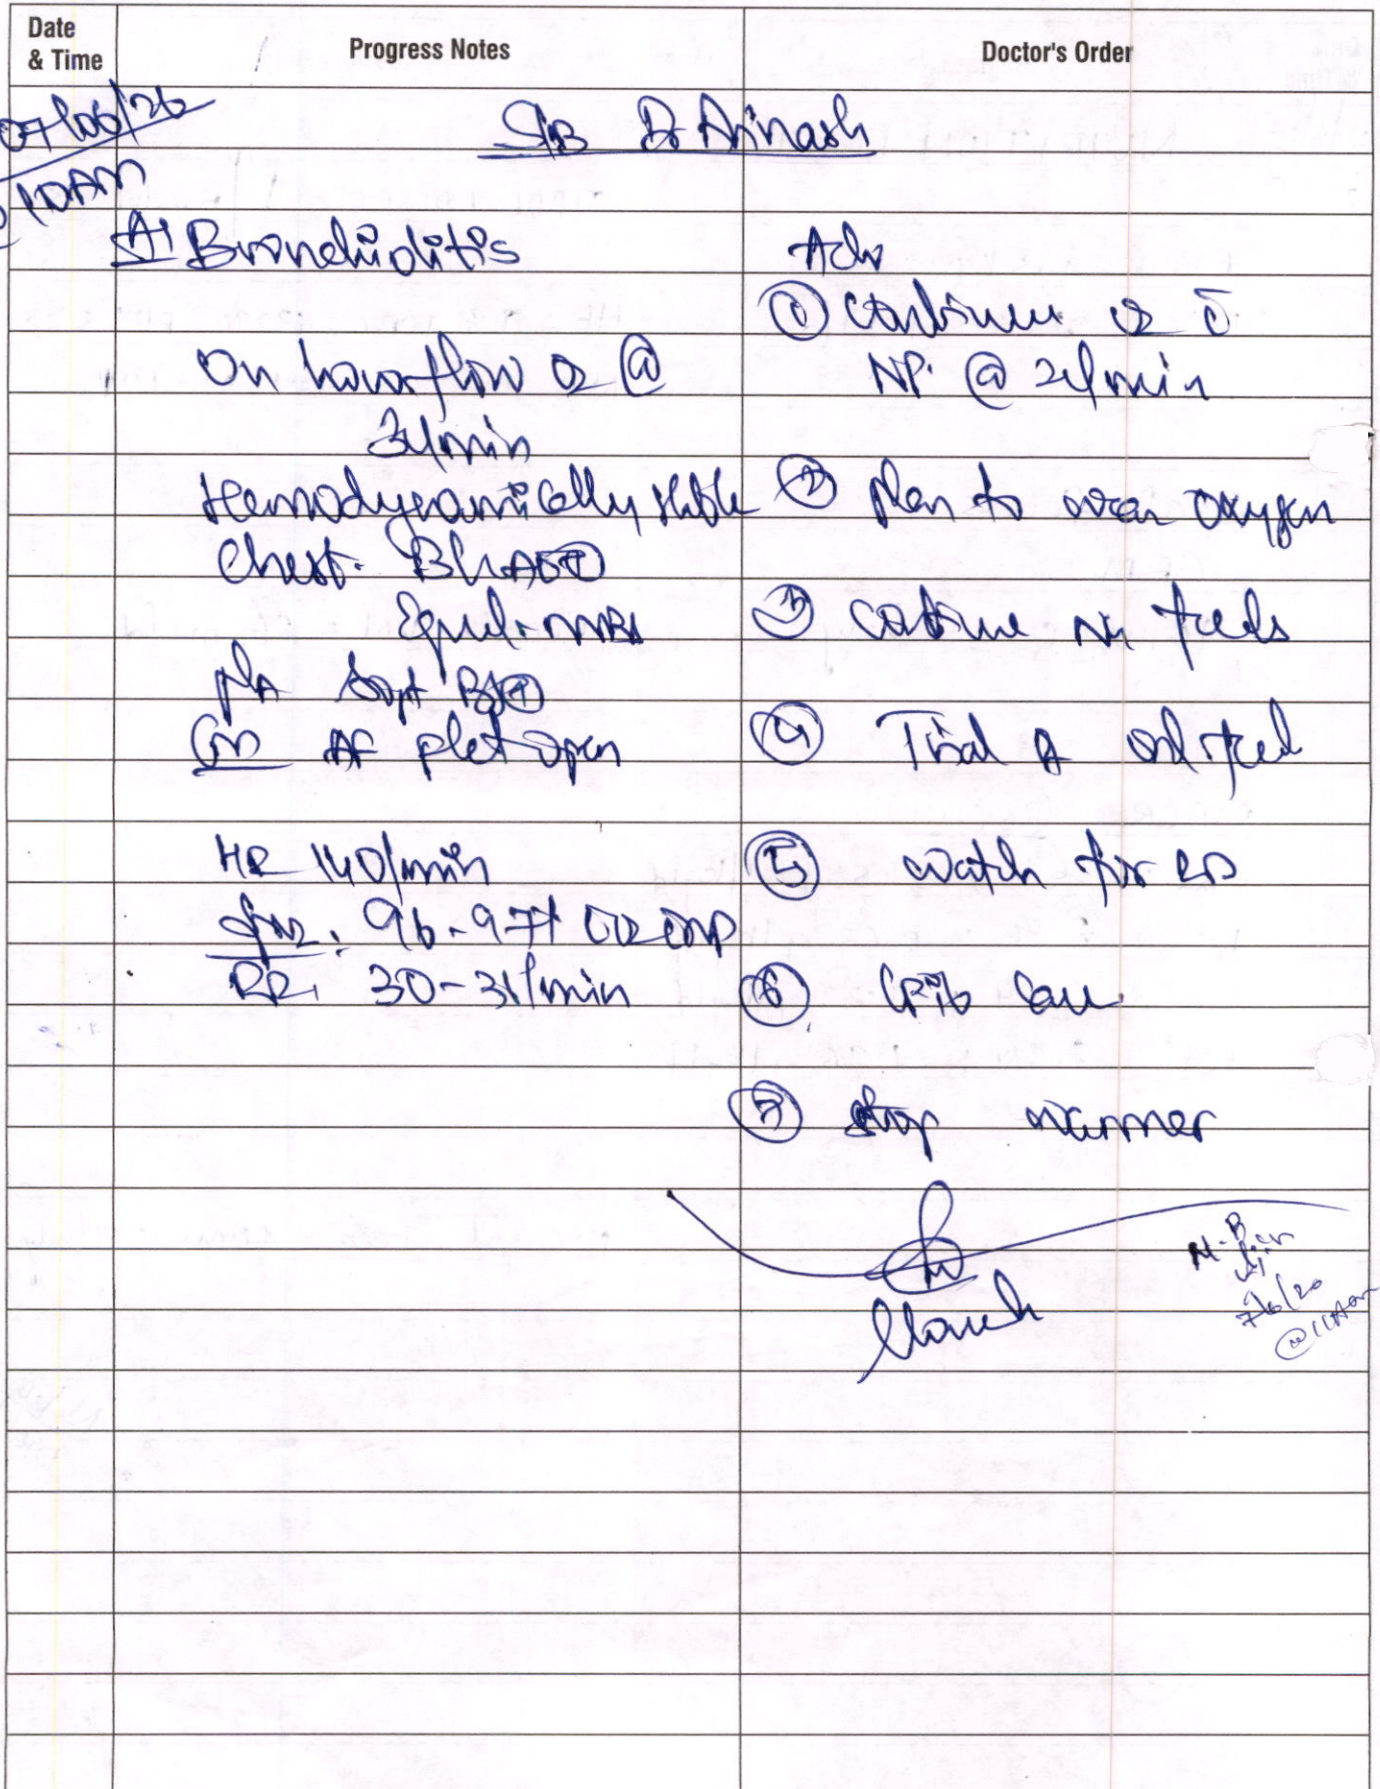 Date & Time
Progress Notes
Doctor's Order
07/06/26
10AM
S/B Dr Avinash
Δ: Bronchiolitis
On flow O2 @
3l/min
Hemodynamically stable
Chest. BLAE⊕
Equal
P/A Soft BS⊕
AF flat open
HR 140/min
SpO2: 96-97%
RR: 30-31/min
Adv
① Continue O2 c̄
NP. @ 2l/min
② plan to wean oxygen
③ Continue feeds
④ Trial of oral feed
⑤ watch for RD
⑥ care
⑦ stop warmer
N.B
7/6/20
@11Am